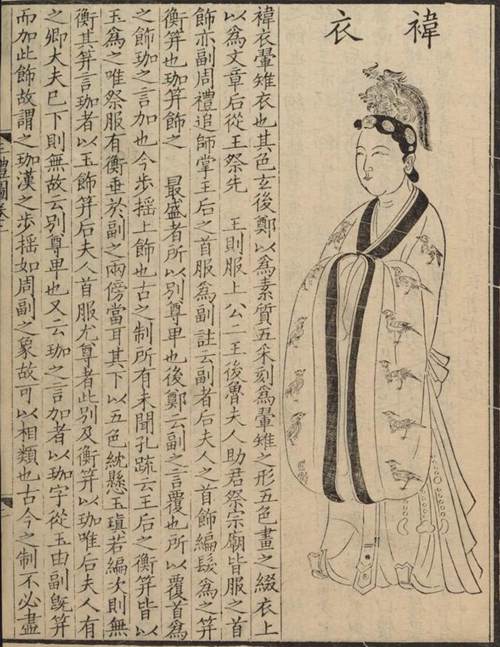 褘衣
褘衣翬雉衣也其色玄後鄭以為素質五采刻為翬雉之形五色畫之綴衣上
以為文章后從王祭先 王則服上公二王後魯夫人助君祭宗廟皆服之首
飾亦副周禮追師掌王后之首服為副註云副者后夫人之首飾編髮為之笄
衡笄也珈笄飾之 最盛者所以別尊卑也後鄭云副之言覆也所以覆首為
之飾珈之言加也今步搖上飾也古之制所有未聞孔疏云王后之衡笄皆以
玉為之唯祭服有衡垂於副之兩傍當耳其下以五色紞懸玉瑱若編次則無
衡其笄言珈者以玉飾笄后夫人首服尤尊者此別及衡笄以珈唯后夫人有
之卿大夫已下則無故云別尊卑也又云珈之言加者以珈字從玉由副既笄
而加此飾故謂之珈漢之步搖如周副之象故可以相類也古今之制不必盡